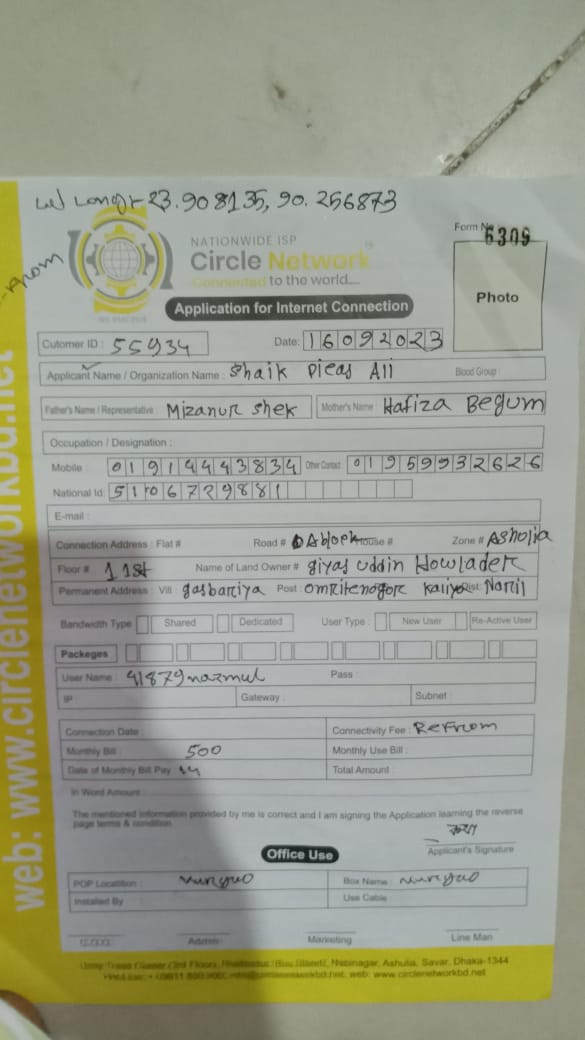 Long:- 23.908135, 90.256873
Form No
6309
NATIONWIDE ISP
Circle Network
Connected to the world....
Photo
Application for Internet Connection
Cutomer ID : 55934
Date: 16092023
Applicant Name / Organization Name : Shaik Pieas Ali
Blood Group :
Father's Name / Representative : Mizanur Shek
Mother's Name : Hafiza Begum
Occupation / Designation :
Mobile : 01914443834 Other Contact : 01959932626
National Id: 5106729881
E-mail :
Connection Address : Flat # Road # Ablock House # Zone # Ashulia
Floor # 1st Name of Land Owner # giyas uddin Howlader
Permanent Address : Vill : gasbariya Post : omritenogor Dist: Naril
Bandwidth Type Shared Dedicated User Type : New User Re-Active User
Packeges
User Name : 41879nazmul Pass :
IP : Gateway : Subnet :
Connection Date : Connectivity Fee : Refrom
Monthly Bill : 500 Monthly Use Bill :
Date of Monthly Bill Pay : Total Amount :
In Word Amount :
The mentioned information provided by me is correct and I am signing the Application learning the reverse
page terms & condition.
Applicant's Signature
Office Use
POP Localtion : Box Name :
Installed By Use Cable :
Admin Marketing Line Man
Nabinagar, Ashulia, Savar, Dhaka-1344
web: www.circlenetworkbd.net
web: www.circlenetworkbd.net